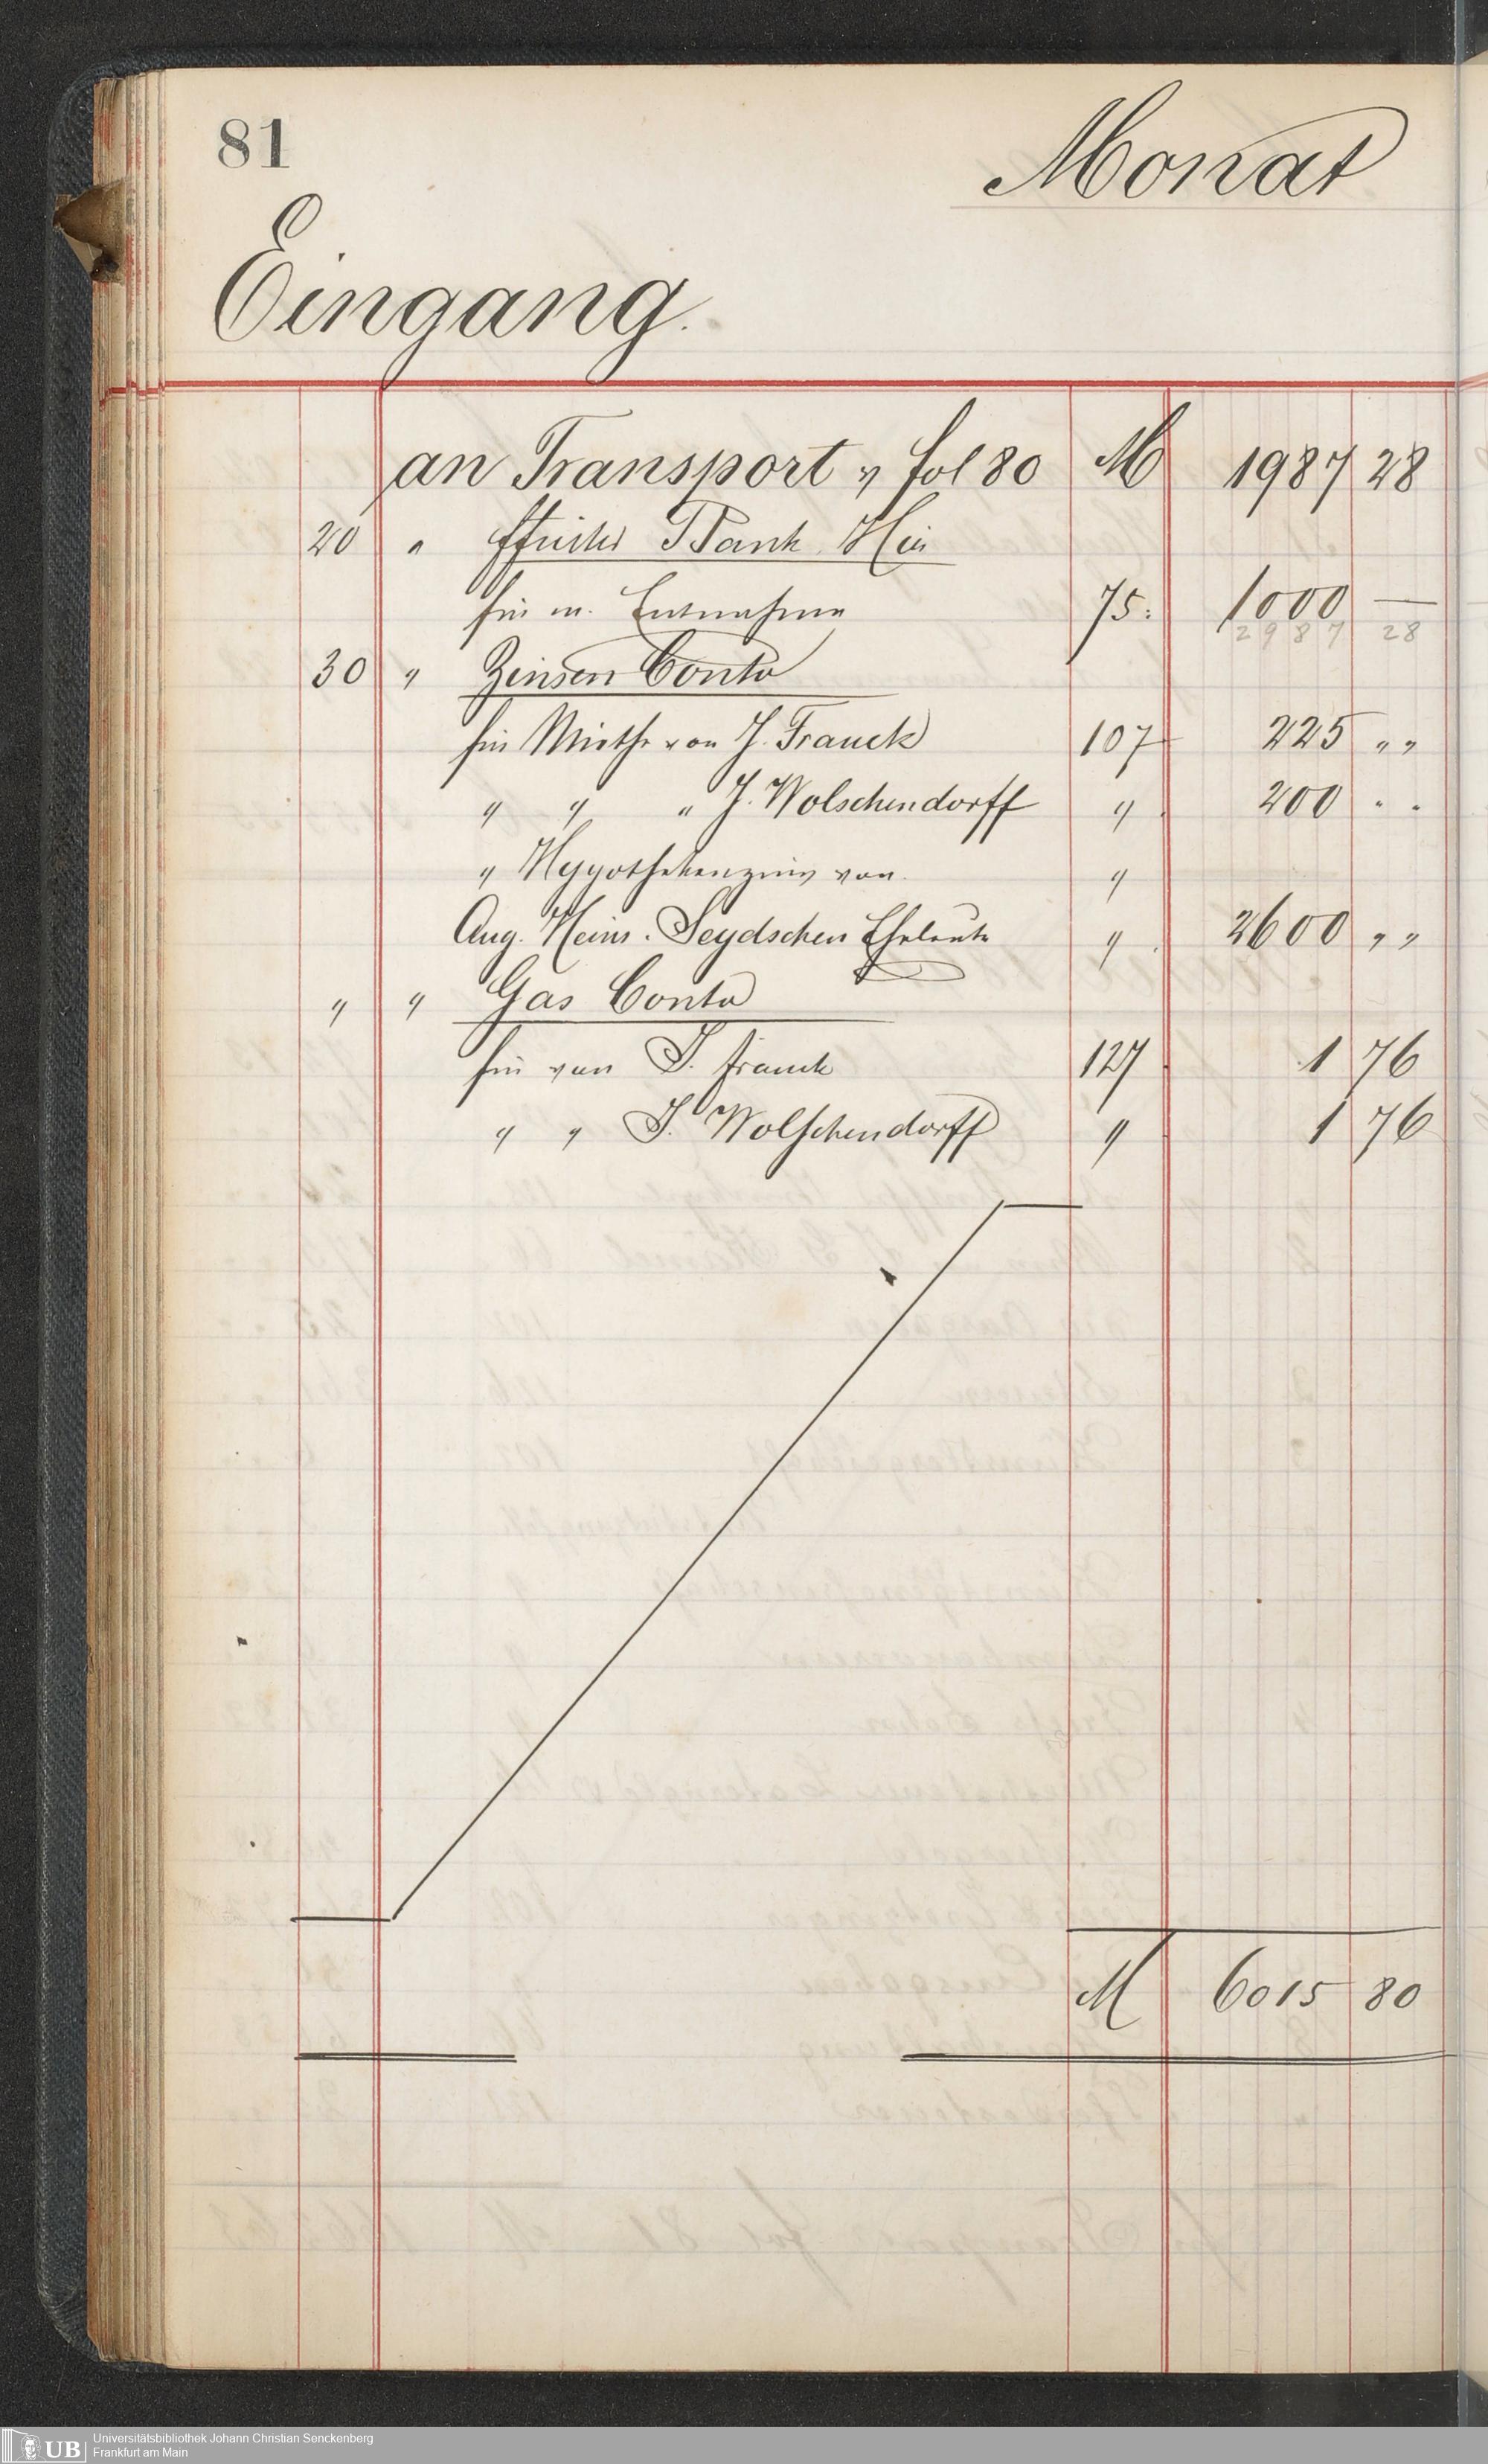 81
Monat
Eingang.
an Transport v fol 80 M 1987 28
20 " Bank Hier
für m. Entnahme 75. 1000 —
2987 28
30 " Zinsen Conto
für Miethe von J. Franck 107 225 " "
" " " J. Wolschendorff " 200 " "
" Hypothekenzins von "
Aug. Heinr. Seydschen Eheleute " 2600 " "
" " Gas Conto
für von J. Franck 127 1 76
" " J. Wolschendorff " 1 76
M 6015 80
UB Universitätsbibliothek Johann Christian Senckenberg
Frankfurt am Main